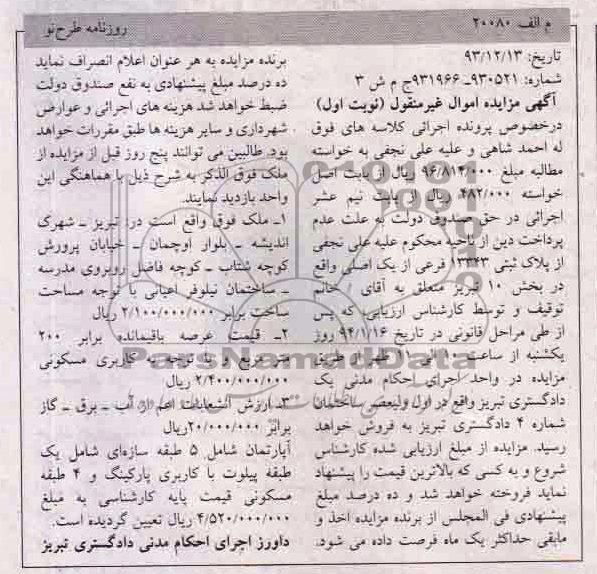 م الف ۲۰۰۸۰
روزنامه طرح‌نو
تاریخ: ۹۳/۱۲/۱۳
شماره: ۹۳۰۵۲۱ـ ۹۳۱۹۶۶ج م ش ۳
آگهی مزایده اموال غیرمنقول (نوبت اول)
درخصوص پرونده اجرائی کلاسه های فوق
له احمد شاهی و علیه علی نجفی به خواسته
مطالبه مبلغ ۹۶/۸۱۴/۰۰۰ ریال از بابت اصل
خواسته ۴۸۲/۰۰۰ ریال از بابت نیم عشر
اجرائی در حق صندوق دولت به علت عدم
پرداخت دین از ناحیه محکوم علیه علی نجفی
از پلاک ثبتی ۱۳۳۴۳ فرعی از یک اصلی واقع
در بخش ۱۰ تبریز متعلق به آقای / خانم
توقیف و توسط کارشناس ارزیابی، که پس
از طی مراحل قانونی در تاریخ ۹۴/۱/۱۶ روز
یکشنبه از ساعت ۱۰ الی ۱۱ ظهر از طریق
مزایده در واحد اجرای احکام مدنی یک
دادگستری تبریز واقع در اول ولیعصر ساختمان
شماره ۴ دادگستری تبریز به فروش خواهد
رسید. مزایده از مبلغ ارزیابی شده کارشناس
شروع و به کسی که بالاترین قیمت را پیشنهاد
نماید فروخته خواهد شد و ده درصد مبلغ
پیشنهادی فی المجلس از برنده مزایده اخذ و
مابقی حداکثر یک ماه فرصت داده می شود.
برنده مزایده به هر عنوان اعلام انصراف نماید
ده درصد مبلغ پیشنهادی به نفع صندوق دولت
ضبط خواهد شد هزینه های اجرائی و عوارض
شهرداری و سایر هزینه ها طبق مقررات خواهد
بود. طالبین می توانند پنج روز قبل از مزایده از
ملک فوق الذکر به شرح ذیل با هماهنگی این
واحد بازدید نمایند.
۱ـ ملک فوق واقع است در: تبریز ـ شهرک
اندیشه ـ بلوار اوچمان ـ خیابان پرورش
کوچه شتاب ـ کوچه فاضل روبروی مدرسه
ـ ساختمان نیلوفر اعیانی با توجه مساحت
ساخت برابر ۲/۱۰۰/۰۰۰/۰۰۰ ریال
۲ـ قیمت عرصه باقیمانده برابر ۲۰۰
متر مربع و با توجه به کاربری مسکونی
۲/۴۰۰/۰۰۰/۰۰۰ ریال
۳ـ ارزش انشعابات اعم از آب ـ برق ـ گاز
برابر ۲۰/۰۰۰/۰۰۰ریال
آپارتمان شامل ۵ طبقه سازه‌ای شامل یک
طبقه پیلوت با کاربری پارکینگ و ۴ طبقه
مسکونی قیمت پایه کارشناسی به مبلغ
۴/۵۲۰/۰۰۰/۰۰۰ ریال تعیین گردیده است.
داورز اجرای احکام مدنی دادگستری تبریز
ParsNamadData